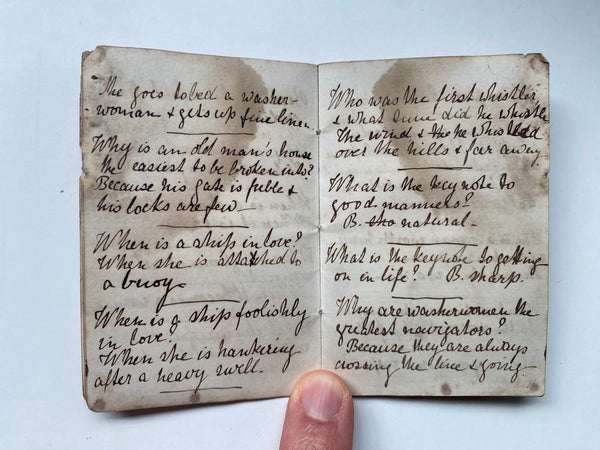 She goes to bed a washer-
woman & gets up fine linen.
Why is an old man's house
the easiest to be broken into?
Because his gate is feble &
his locks are few
When is a ship in love?
When she is attatched to
a buoy.
When is a ship foolishly
in love.
When she is hankering
after a heavy swell.
Who was the first whistler
& what tune did he whistle
The wind & he whistled
over the hills & far away.
What is the key note to
good manners?
B. natural.
What is the key note to getting
on in life? B. sharp.
Why are washerwomen the
greatest navigators?
Because they are always
crossing the line & going